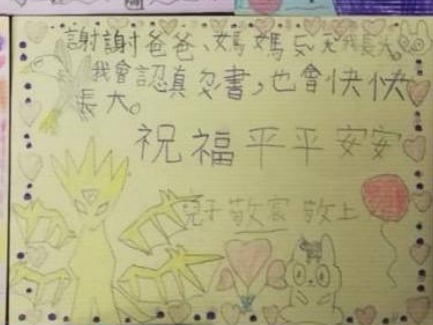 謝謝爸爸、媽媽天天我長大。
我會認真念書，也會快快
長大。
祝福平平安安
兒子敬家敬上